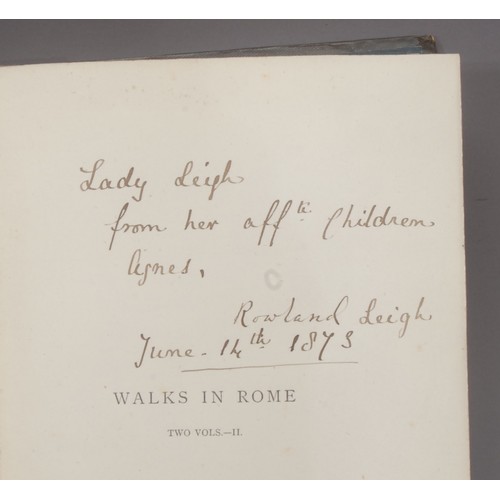 Lady Leigh
from her aff.te Children
Agnes,
Rowland Leigh
June 14th 1873
WALKS IN ROME
TWO VOLS.—II.